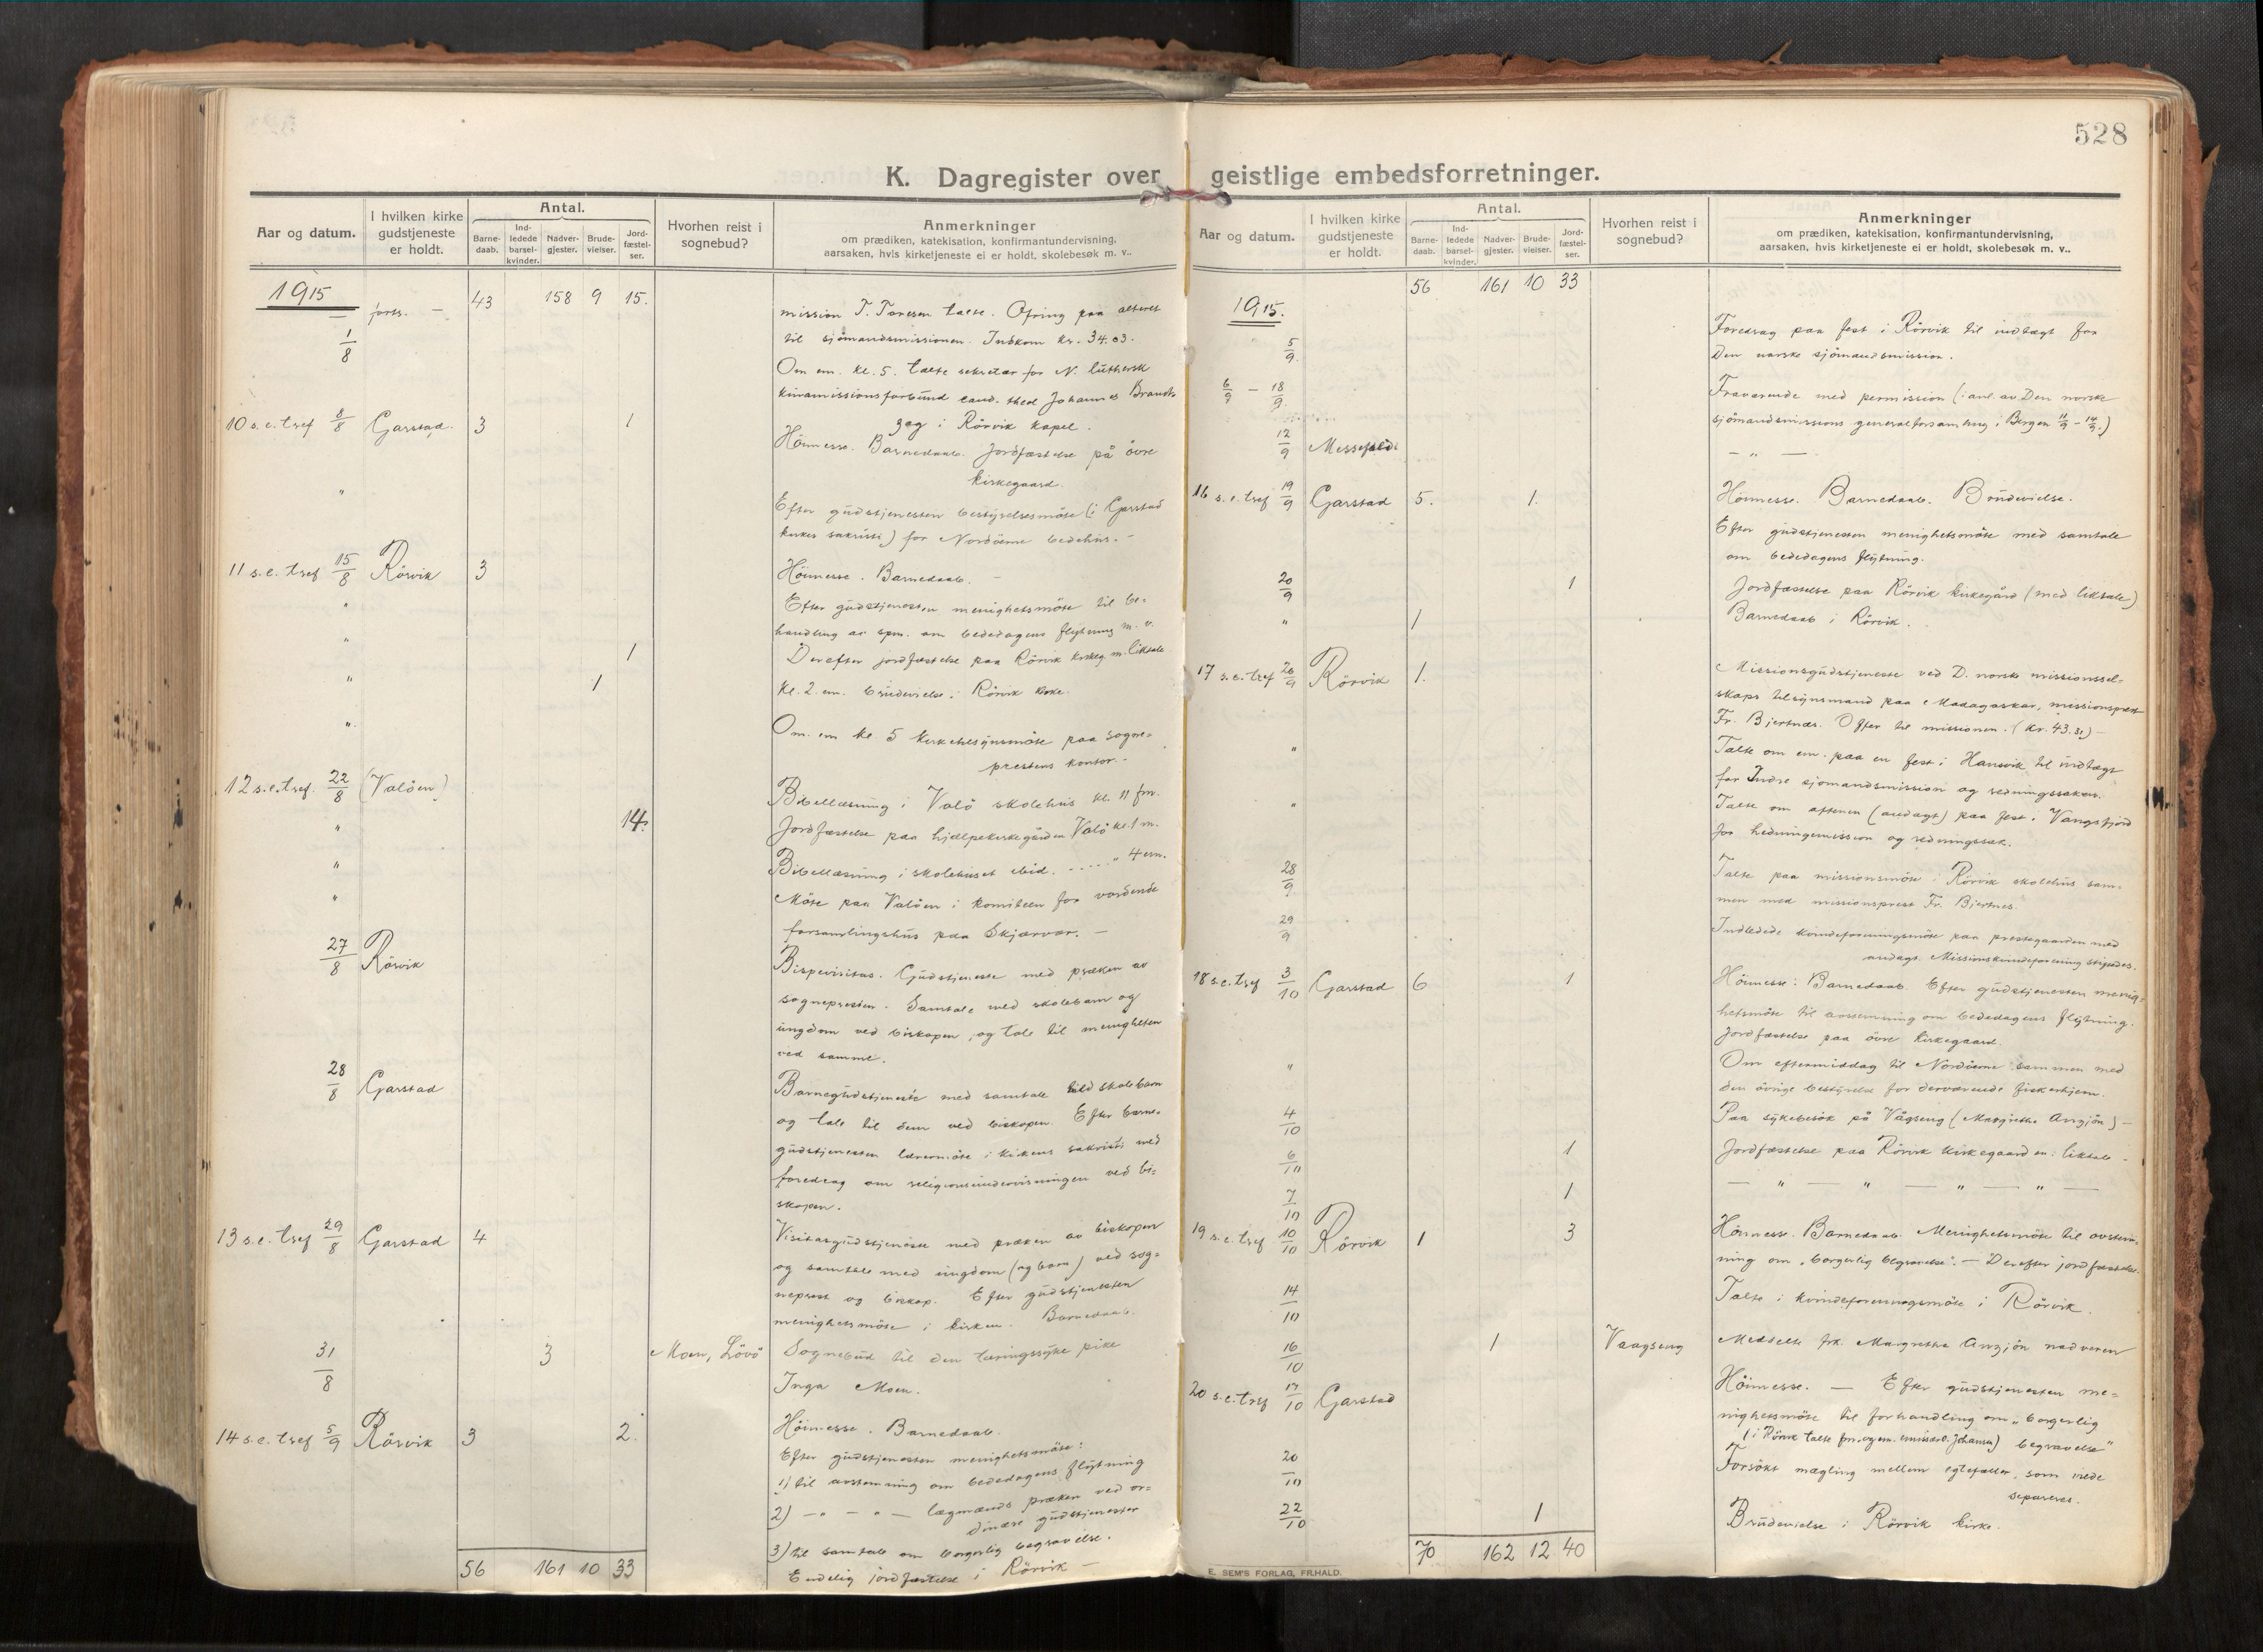 528
K. Dagregister over geistlige embedsforretninger.
Aar og datum.
I hvilken kirke gudstjeneste er holdt.
Antal.
Barne-daab.
Ind-ledede barsel-kvinder.
Nadver-gjester.
Brude-vielser.
Jord-fæstel-ser.
Hvorhen reist i sognebud?
Anmerkninger
om prædiken, katekisation, konfirmantundervisning,
aarsaken, hvis kirketjeneste ei er holdt, skolebesøk m. v..
1915 forts. — 43 158 9 15.
mission T. Toresen talte. Ofring paa alteret
1/8 til sjömandsmissionen. Indkom kr. 34.03.
Om em. kl. 5. talte sekretær for N. luthersk
kinamissionsforbund cand. theol Johannes Brandt-
zæg i Rörvik kapel.
10 s.e. tref 8/8 Garstad. 3 1
Höimesse. Barnedaab. Jordfæstelse på övre
kirkegaard.
" Efter gudstjenesten bestyrelsesmöte (i Garstad
kirkes sakristi) for Nordöerne bedehus. -
11 s.e. tref 15/8 Rörvik 3 Höimesse. Barnedaab. —
" Efter gudstjenesten menighetsmöte til be-
handling av spm. om bededagens flytning m. v.
" 1 Derefter jordfæstelse paa Rörvik kirkeg. m. liktale
" 1 Kl. 2. em. brudevielse i Rörvik kirke.
" Om. em kl 5 kirketilsynsmöte paa sogne-
prestens kontor.
12 s.e. tref. 22/8 (Valöen) Bibellæsning i Valö skolehus kl. 11 fm.
" 14. Jordfæstelse paa hjælpekirkegården Valö kl. 1 m.
" Bibellæsning i skolehuset ibid. ..... " 4 em.
" Möte paa Valöen i komiteen for vordende
forsamlingshus paa Skjærvær. —
27/8 Rörvik Bispevisitas. Gudstjeneste med præken av
sognepresten. Samtale med skolebarn og
ungdom ved biskopen, og tale til menigheten
ved samme.
28/8 Garstad Barnegudstjeneste med samtale med skolebarn
og tale til dem ved biskopen. Efter barne-
gudstjenesten lærermöte i kirkens sakristi med
foredrag om religionsundervisningen ved bi-
skopen.
13 s.e. tref 29/8 Garstad 4 Visitasgudstjeneste med præken av biskopen
og samtale med ungdom (og barn) ved sog-
neprest og biskop. Efter gudstjenesten
menighetsmöte i kirken. Barnedaab.
31/8 3 Moen, Lövö Sognebud til den tæringssyke pike
Inga Moen.
14 s.e. tref 5/9 Rörvik 3 2. Höimesse. Barnedaab.
Efter gudstjenesten menighetsmöte:
1) til avstemning om bededagens flytning
2) — " — " — lægmands præken ved or-
dinære gudstjenester
3) til samtale om borgerlig begravelse.
Endelig jordfæstelse i Rörvik —
56 161 10 33
Aar og datum.
I hvilken kirke gudstjeneste er holdt.
Antal.
Barne-daab.
Ind-ledede barsel-kvinder.
Nadver-gjester.
Brude-vielser.
Jord-fæstel-ser.
Hvorhen reist i sognebud?
Anmerkninger
om prædiken, katekisation, konfirmantundervisning,
aarsaken, hvis kirketjeneste ei er holdt, skolebesøk m. v..
56 161 10 33
1915.
5/9. Foredrag paa fest i Rörvik til indtægt for
Den norske sjömandsmission.
6/9 — 18/9. Fraværende med permission (: anl. av Den norske
sjömandsmissions generalforsamling i Bergen 11/9 - 14/9.)
12/9 Messefald. — " —
16 s.e. tref 19/9 Garstad 5. 1. Höimesse. Barnedaab. Brudevielse.
Efter gudstjenesten menighetsmöte med samtale
om bededagens flytning.
20/9 1 Jordfæstelse paa Rörvik kirkegård (med liktale)
" 1 Barnedaab i Rörvik.
17 s.e. tref 26/9 Rörvik 1. Missionsgudstjeneste ved D. norske missionssel-
skaps tilsynsmand paa Madagaskar, missionsprest
Fr. Bjertnæs. Offer til missionen. (Kr. 43.31) —
" Talte om em. paa en fest i Hansvik til indtægt
for Indre sjömandsmission og redningssaken.
" Talte om aftenen (andagt) paa fest i Vangsfjord
for hedningemission og redningssak.
28/9 Talte paa missionsmöte i Rörvik skolehus sam-
men med missionsprest Fr. Bjertnes.
29/9 Indledede kvindeforeningsmöte paa prestegaarden med
andagt. Missionskvindeforening stiftedes.
18 s.e. tref 3/10 Garstad 6 1 Höimesse: Barnedaab. Efter gudstjenesten menig-
hetsmöte til avstemning om bededagens flytning.
Jordfæstelse paa övre kirkegaard.
" Om eftermiddag til Nordöerne sammen med
den övrige bestyrelse for derværende fiskerhjem.
4/10 Paa sykebesök på Vågseng (Margrethe Anzjön) —
6/10 1 Jordfæstelse paa Rörvik kirkegaard m: liktale.
7/10 1 — " — " — " — " —
19 s.e. tref 10/10 Rörvik 1 3 Höimesse. Barnedaab. Menighetsmöte til avstem-
ning om "borgerlig begravelse". — Derefter jordfæstelse.
14/10 Talte i kvindeforeningsmöte i Rörvik.
16/10 1 Vaagseng Meddelte frk. Margrethe Anzjön nadveren
20 s.e. tref 17/10 Garstad Höimesse. — Efter gudstjenesten me-
nighetsmöte til forhandling om "borgerlig
(i Rörvik talte fm. og em. emissær O. Johansen) begravelse"
20/10 Forsökt mægling mellem egtefæller, som vilde
separeres.
22/10 1 Brudevielse i Rörvik kirke.
70 162 12 40
E. SEM'S FORLAG, FR.HALD.